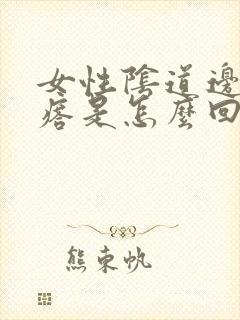 女性陰道邊
痞是怎麼回
熊東帆